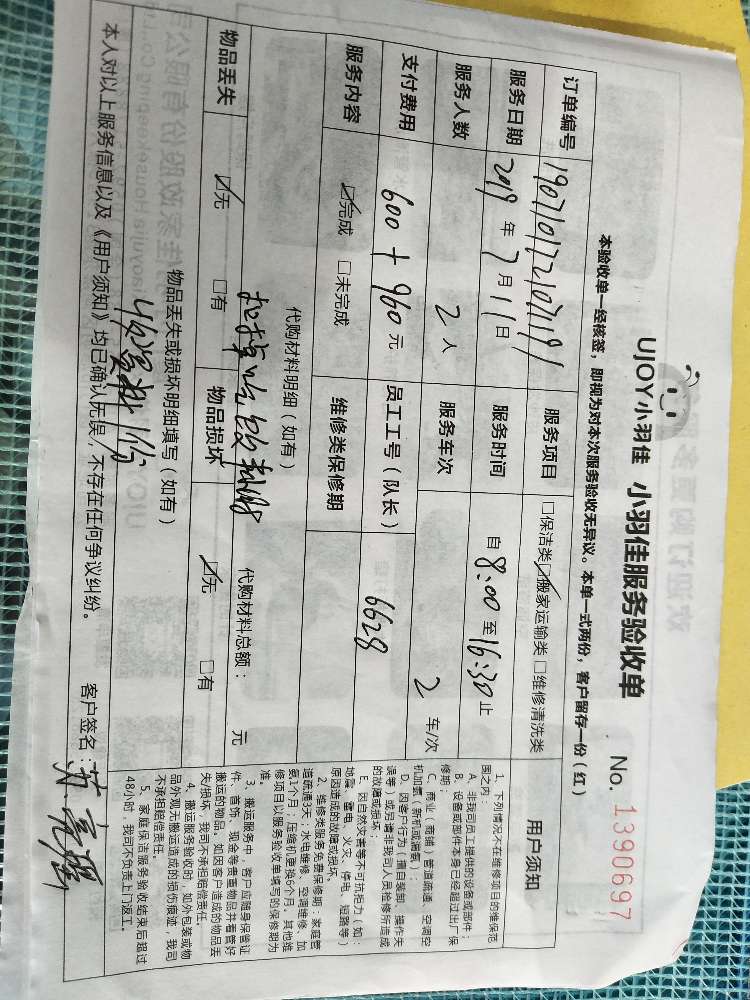 UJOY小羽佳 小羽佳服务验收单 No. 1390697
本验收单一经核签，即视为对本次服务验收无异议。本单一式两份，客户留存一份（红）
订单编号 服务项目 □保洁类☑搬家运输类□维修清洗类
服务日期 2019年7月11日 服务时间 自8:00至16:30止
服务人数 2人 服务车次 2车/次
支付费用 600+960元 员工工号（队长） 6628
服务内容 ☑完成 □未完成 维修类保修期
代购材料明细（如有） 代购材料总额： 元
物品丢失 ☑无 □有 物品损坏 ☑无 □有
物品丢失或损坏明细填写（如有）
本人对以上服务信息以及《用户须知》均已确认无误，不存在任何争议纠纷。 客户签名：
用户须知
1、下列情况不在维修项目的维保范
围之内：
A、非我司员工提供的设备或部件；
B、设备或部件本身已经超过出厂保
修期；
C、商业（商铺）管道疏通、空调空
机加氨（新机或漏氨）；
D、因客户行为（擅自装卸、操作失
误等）或另请非我司人员检修所造成
的故障或损坏；
E、因自然灾害等不可抗拒力（如：
地震、雷电、火灾、停电、短路等）
原因造成的故障或损坏。
2、维修类服务免费保修期：家庭管
道疏通3天，水电维修、空调维修、加
氨1个月；压缩机更换6个月，其他维
修项目以服务验收单填写的保修期为
准。
3、搬运服务中，客户应随身保管证
件、首饰、现金等贵重物品并看管好
搬运的物品，如因客户造成的物品丢
失/损坏，我司不承担赔偿责任。
4、搬运服务验收时，如外包装或物
品外观无搬运造成的损伤痕迹，我司
不承担赔偿责任。
5、家庭保洁服务验收结束后超过
48小时，我司不负责上门返工。